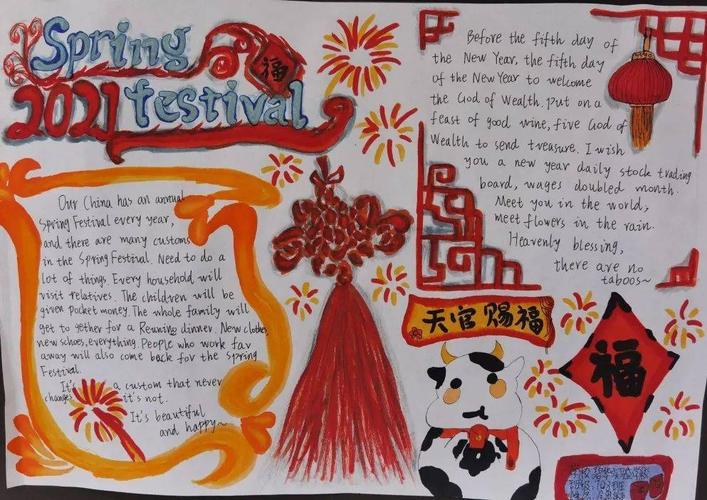 Spring
福
2021 festival
Our China has an annual
Spring Festival every year,
and there are many customs
in the Spring Festival. Need to do a
lot of things. Every household will
visit relatives. The children will be
given pocket money. The whole family will
get to gether for a Reunino dinner. New clothes,
new shoes, everything. People who work far
away will also come back for the spring
Festival.
It's a custom that never
changes it's not.
It's beautiful
and happy~
Before the fifth day of
the New Year, the fifth day
of the New Year to welcome
the God of Wealth. Put on a
feast of good wine, five God of
Wealth to send treasure. I wish
you a new year daily stock trading
board, wages doubled month.
Meet you in the world,
meet flowers in the rain.
Heavenly blessing,
there are no
taboos~
天官赐福
福